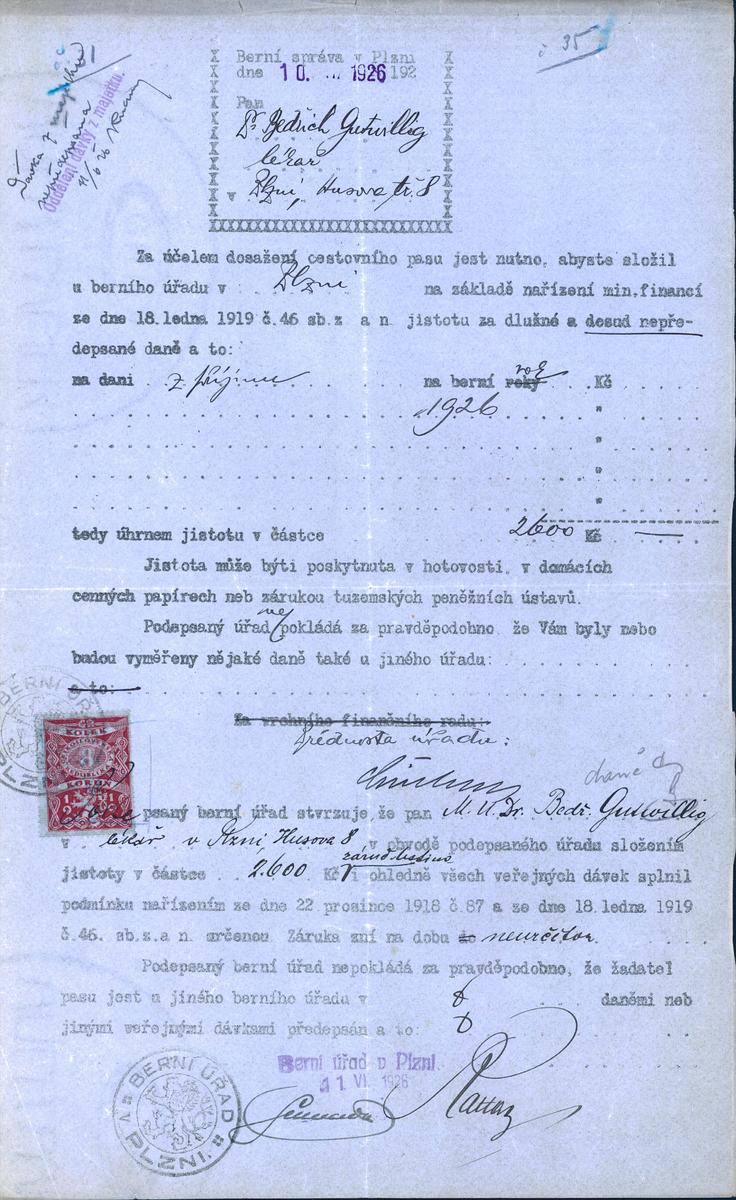 č 35
Dávka z majetku
nepředepsána
11/6 26
Oddělení dávky z majetku.
Berní správa v Plzni
dne 10. 1926 192
Pan
Dr Bedřich Gutwillig
lékař
v Plzni, Husova tř. 8
Za účelem dosažení cestovního pasu jest nutno, abyste složil
u berního úřadu v Plzni na základě nařízení min.financí
ze dne 18.ledna 1919 č.46 sb.z a n. jistotu za dlužné a dosud nepře-
depsané daně a to:
na dani z příjmu na berní roky rok Kč
1926 "
"
"
"
tedy úhrnem jistotu v částce 2600 Kč —
Jistota může býti poskytnuta v hotovosti, v domácích
cenných papírech neb zárukou tuzemských peněžních ústavů.
Podepsaný úřad nepokládá za pravděpodobno že Vám byly nebo
budou vyměřeny nějaké daně také u jiného úřadu:
a to:
Za vrchního finančního radu:
Přednosta úřadu:
BERNÍ ÚŘAD V PLZNI
KOLEK
KORUN
psaný berní úřad stvrzuje, že pan M.U.Dr. Bedř. Gutwillig
v lékař v Plzni Husova 8 v obvodě podepsaného úřadu složením
jistoty v částce 2.600 Kč i ohledně všech veřejných dávek splnil
podmínku nařízením ze dne 22 prosince 1918 č.87 a ze dne 18.ledna 1919
č.46. sb.z.a n. určenou. Záruka zní na dobu do neurčitou.
Podepsaný berní úřad nepokládá za pravděpodobno, že žadatel
pasu jest u jiného berního úřadu v daněmi neb
jinými veřejnými dávkami předepsán a to:
Berní úřad v Plzni.
11 VI. 1926
BERNÍ ÚŘAD V PLZNI.